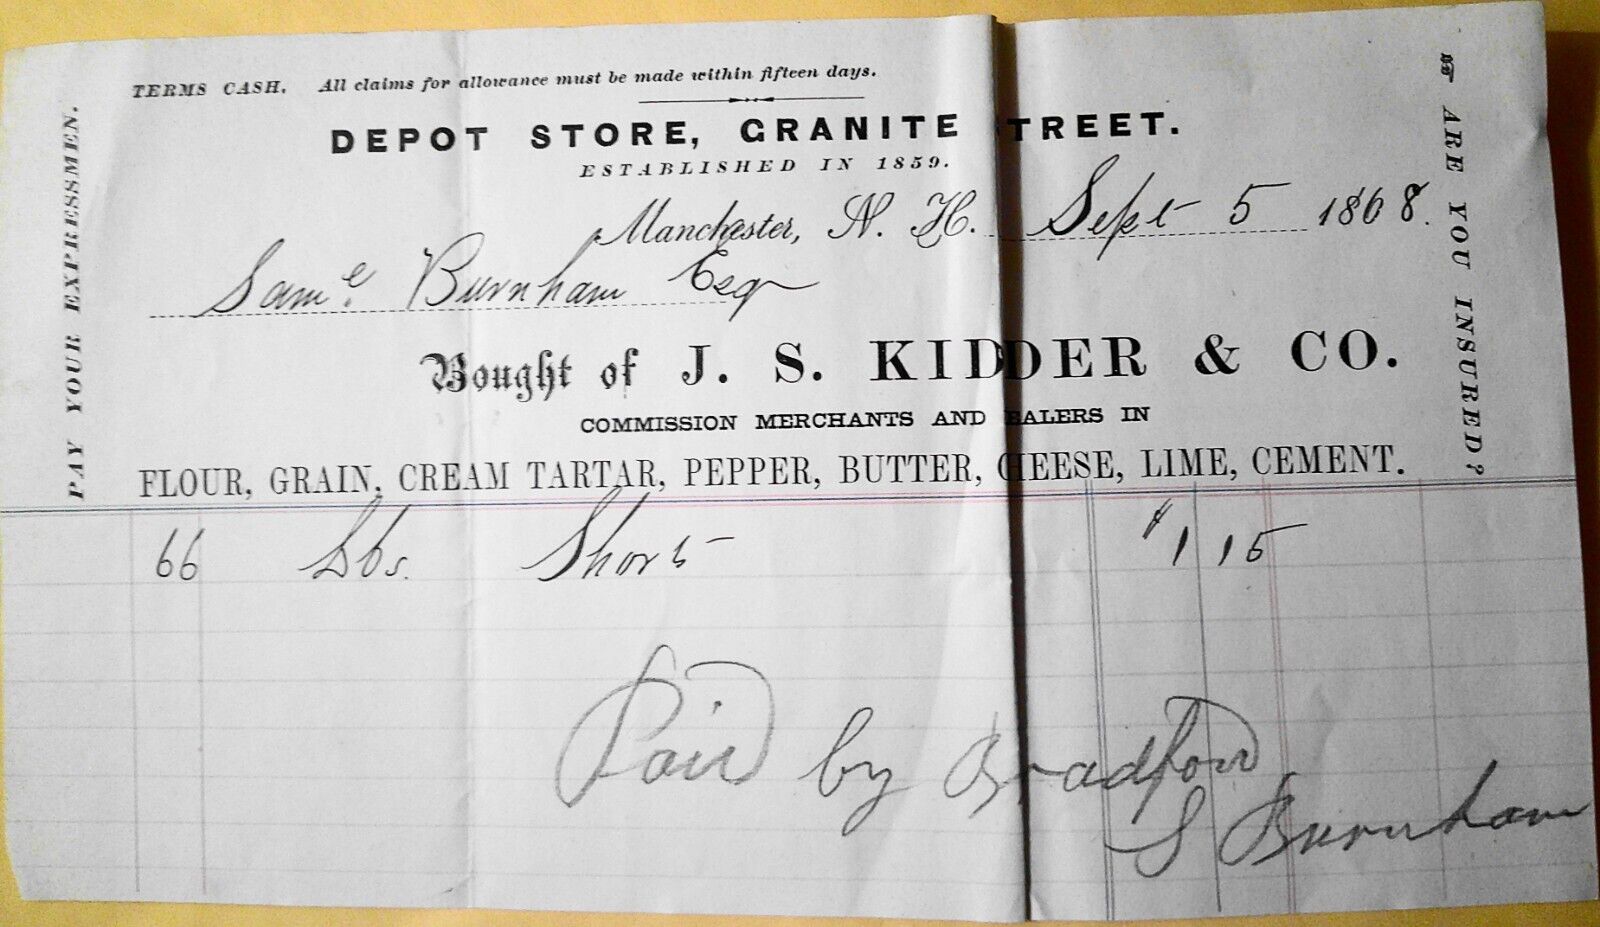 TERMS CASH. All claims for allowance must be made within fifteen days.
DEPOT STORE, GRANITE TREET.
ESTABLISHED IN 1859.
Manchester, N. H. Sept 5 1868.
Saml. Burnham Esq
Bought of J. S. KIDDER & CO.
COMMISSION MERCHANTS AND EALERS IN
FLOUR, GRAIN, CREAM TARTAR, PEPPER, BUTTER, CHEESE, LIME, CEMENT.
66 Lbs. Shorts $1 15
Paid by Bradford
S Burnham
PAY YOUR EXPRESSMEN.
ARE YOU INSURED?